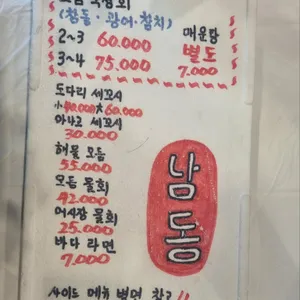 (참돔·광어·참치)
2~3 60.000 매운탕 별도
3~4 75.000 7.000
도다리 세꼬시
小 40.000 大 60.000
아나고 세꼬시
30.000
해물 모듬
55.000
모듬 물회
42.000
어사장 물회
25.000
바다 라면
7.000
남동
사이드 메뉴 별면 참고